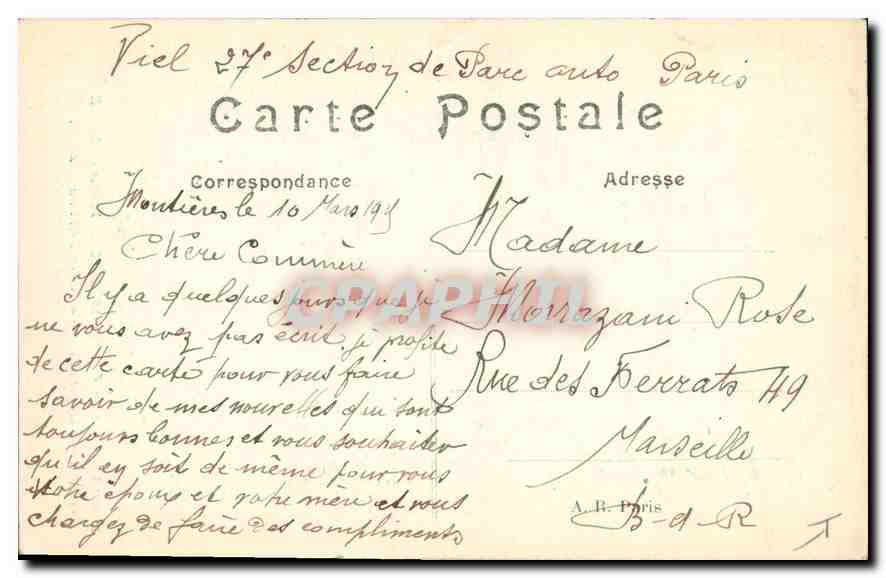 Viel 27e Section de Parc auto Paris
Carte Postale
Correspondance
Adresse
Montières le 10 Mars 1915
Chère Commère
Il y a quelques jours que je
ne vous avez pas écrit je profite
de cette carte pour vous faire
savoir de mes nouvelles qui sont
toujours bonnes et vous souhaiter
qu'il en soit de même pour vous
votre époux et votre mère et vous
chargez de faire des compliments
Madame
Morazani Rose
Rue des Ferrats 49
Marseille
A. R. Paris
B-d-R
CPAPHIL